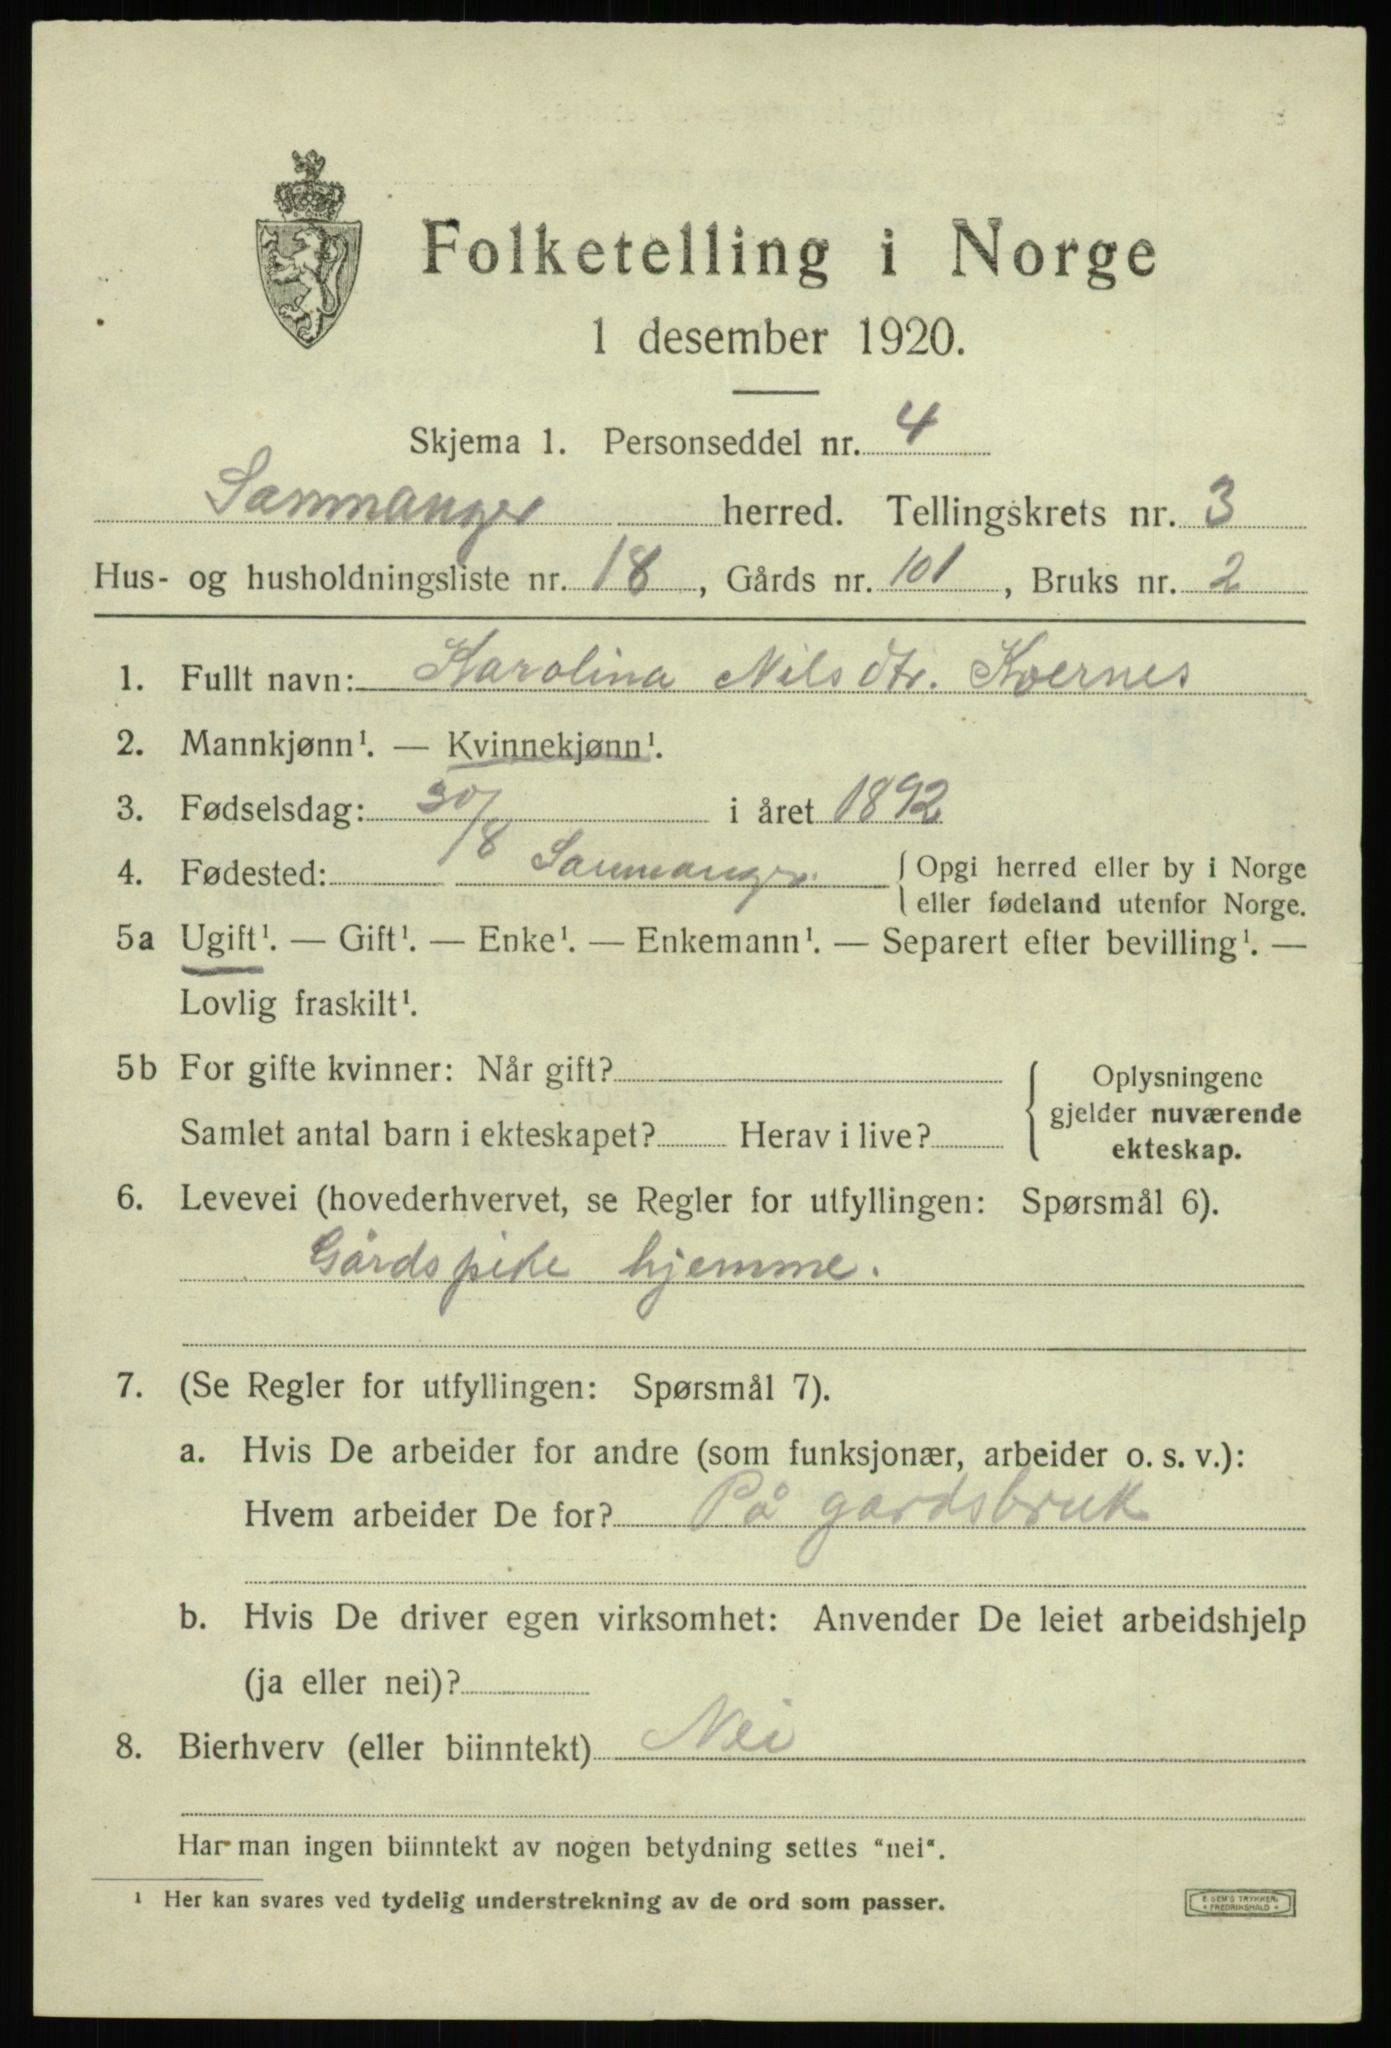 Folketelling i Norge
1 desember 1920.
Skjema 1. Personseddel nr. 4
Sammanger herred. Tellingskrets nr. 3
Hus- og husholdningsliste nr. 18, Gårds nr. 101, Bruks nr. 2
1. Fullt navn: Karolina Nilsdtr. Kvernes
2. Mannkjønn¹. — Kvinnekjønn¹.
3. Fødselsdag: 30/8 i året 1892
4. Fødested: Sammanger { Opgi herred eller by i Norge
eller fødeland utenfor Norge.
5a Ugift¹. — Gift¹. — Enke¹. — Enkemann¹. — Separert efter bevilling¹. —
Lovlig fraskilt¹.
5b For gifte kvinner: Når gift? { Oplysningene
gjelder nuværende
Samlet antal barn i ekteskapet? Herav i live?
ekteskap.
6. Levevei (hovederhvervet, se Regler for utfyllingen: Spørsmål 6).
Gårdspike hjemme.
7. (Se Regler for utfyllingen: Spørsmål 7).
a. Hvis De arbeider for andre (som funksjonær, arbeider o. s. v.):
Hvem arbeider De for? På gardsbruk
b. Hvis De driver egen virksomhet: Anvender De leiet arbeidshjelp
(ja eller nei)?
8. Bierhverv (eller biinntekt) Nei
Har man ingen biinntekt av nogen betydning settes "nei".
¹ Her kan svares ved tydelig understrekning av de ord som passer.
E. SEM'S TRYKKERI
• FREDRIKSHALD •